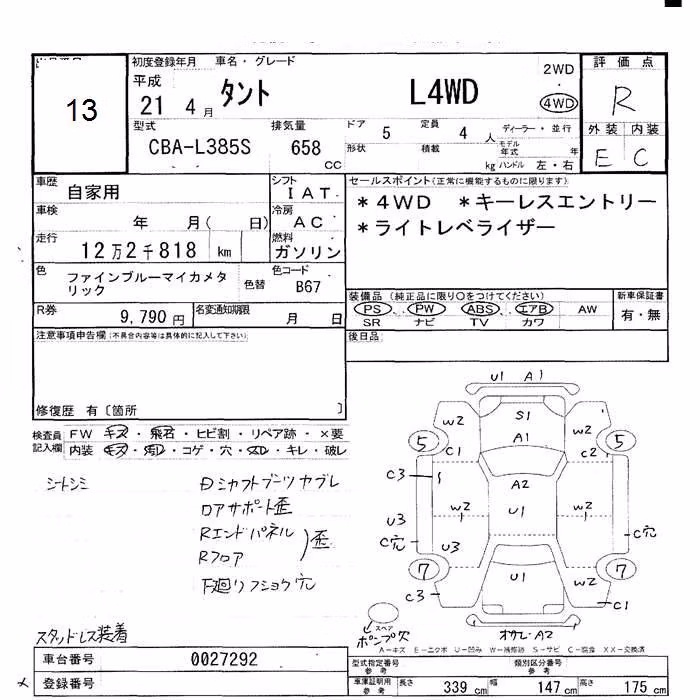 13
初度登録年月 車名・グレード
平成
21 4月 タント L4WD
2WD
4WD
評価点
R
外装 内装
E C
型式 排気量 ドア 定員 ディーラー・並行
CBA-L385S 658 CC 5 4 人
形状 積載 kg
モデル年式 年
ハンドル 左・右
車歴 自家用
シフト IAT
車検 年 月( 日)
冷房 AC
走行 12万2千818 km
燃料 ガソリン
色 ファインブルーマイカメタリック
色替
色コード B67
R券 9,790円
名変通知期限 月 日
セールスポイント(正常に機能するものに限ります)
*4WD *キーレスエントリー
*ライトレベライザー
装備品(純正品に限り○をつけてください)
PS PW ABS エアB AW
SR ナビ TV カワ
新車保証書
有・無
後日品
注意事項申告欄(不具合内容等は具体的に記入して下さい)
修復歴 有〔箇所 〕
検査員記入欄
FW キズ・飛石・ヒビ割・リペア跡・×要
内装 キズ・汚レ・コゲ・穴・スレ・キレ・破レ
シートシミ
Dシャフトブーツカブレ
ロアサポート歪
Rエンドパネル
Rフロア
歪
下廻りフショク穴
スタッドレス装着
U1 A1
W2 S1 W2
5 A1 5
C1 C2
C3 A2
W2 U1 W2
U3
C穴 U3 C穴
7 U1 W2 7
C3 C1
スペア
ポンプ穴
オサレ・A2
A-キズ E-エクボ U-凹み W-補修跡 S-サビ C-腐食 XX-交換済
車台番号 0027292
登録番号
型式指定番号 参考
類別区分番号 参考
車庫証明用 参考
長さ 339 cm 幅 147 cm 高さ 175 cm